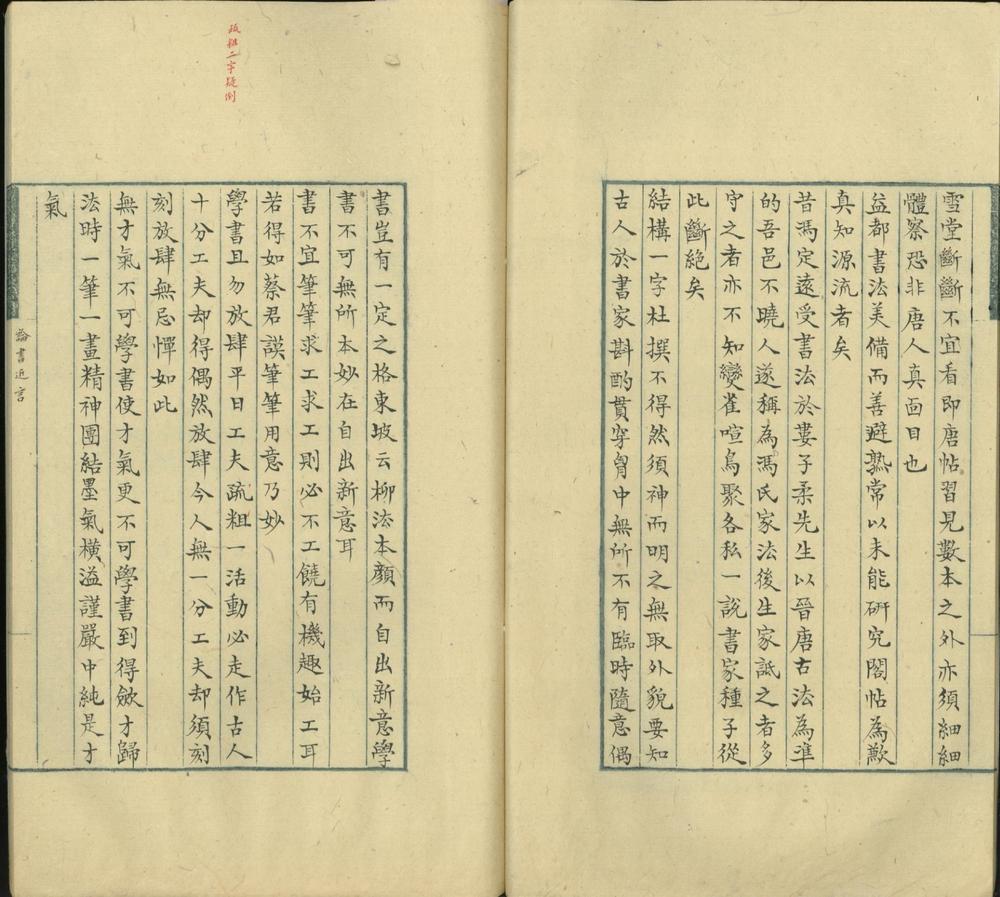 雪堂斷斷不宜看即唐帖習見數本之外亦須細細
體察恐非唐人真面目也
益都書法美備而善避熟常以未能研究閣帖為歉
真知源流者矣
昔馮定遠受書法於婁子柔先生以晉唐古法為準
的吾邑不曉人遂稱為馮氏家法後生家詆之者多
守之者亦不知變雀喧鳥聚各私一說書家種子從
此斷絕矣
結構一字杜撰不得然須神而明之無取外貌要知
古人於書家斟酌貫穿胷中無所不有臨時隨意偶
書豈有一定之格東坡云柳法本顏而自出新意學
書不可無所本妙在自出新意耳
書不宜筆筆求工求工則必不工饒有機趣始工耳
若得如蔡君謨筆筆用意乃妙
學書且勿放肆平日工夫疏粗一活動必走作古人
十分工夫却得偶然放肆今人無一分工夫却須刻
刻放肆無忌憚如此
無才氣不可學書使才氣更不可學書到得斂才歸
法時一筆一畫精神團結墨氣橫溢謹嚴中純是才
氣
疏粗二字疑倒
論書近言